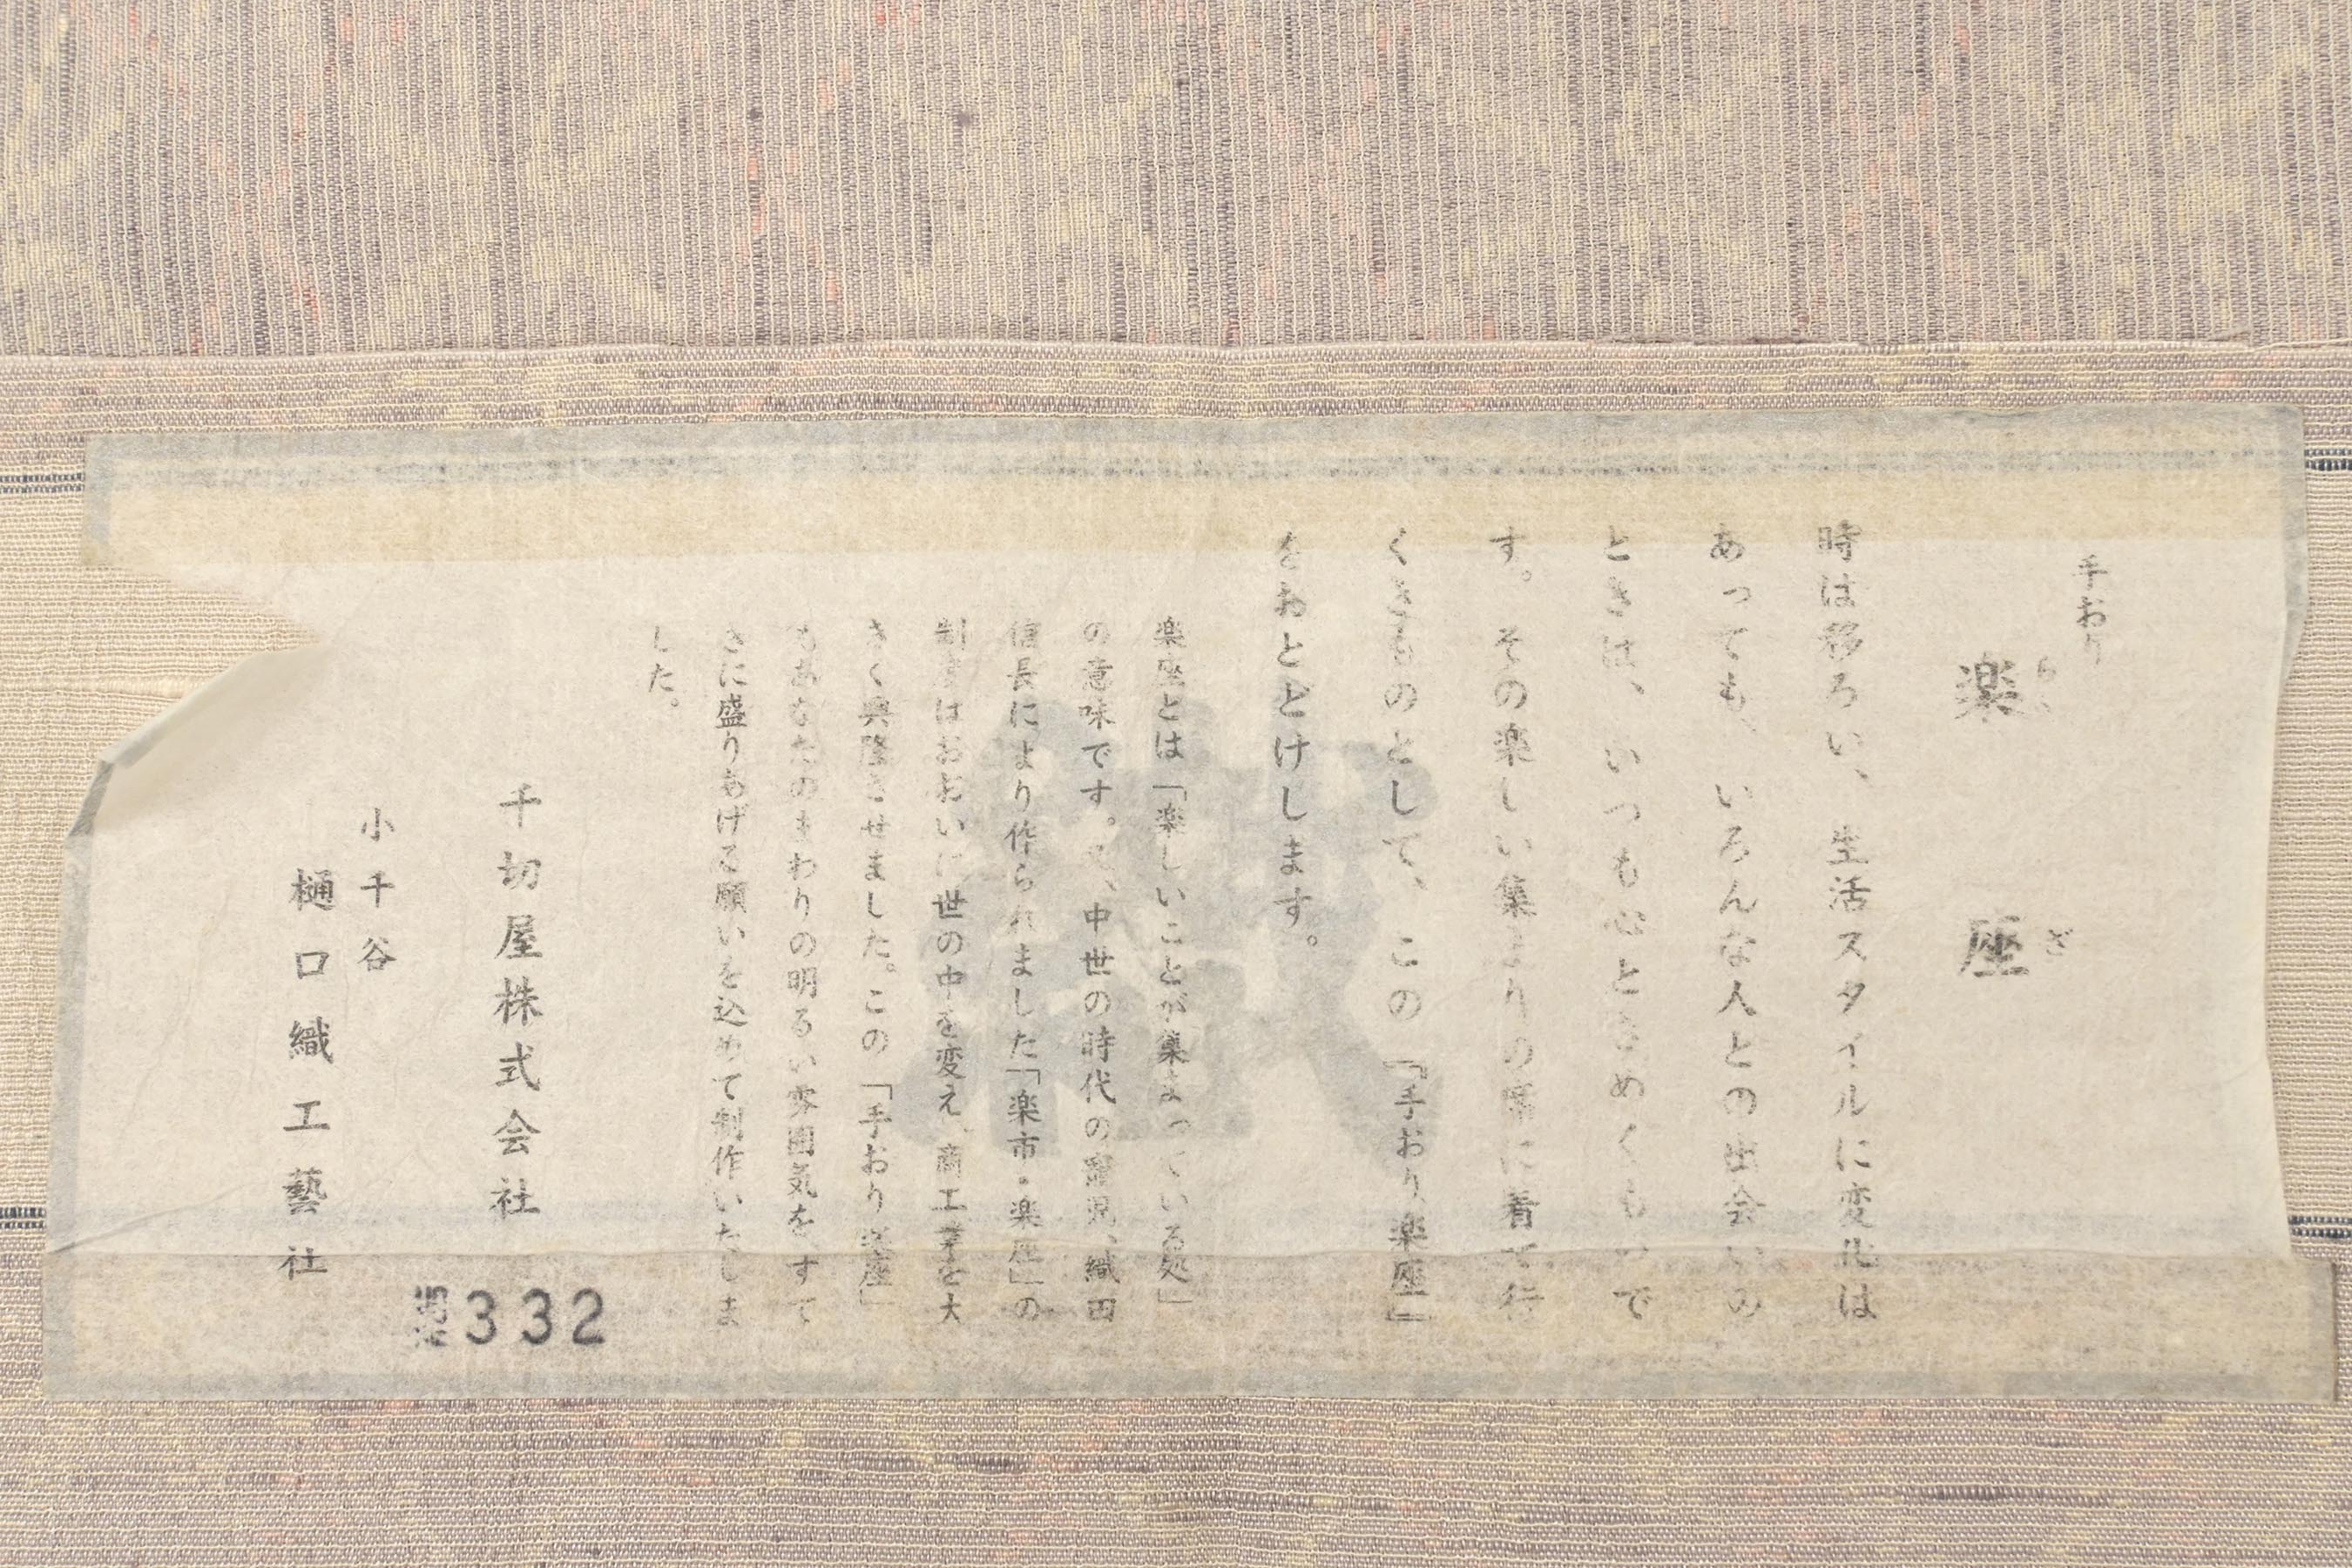 手おり
楽座
らくざ
時は移ろい、生活スタイルに変化は
あっても、いろんな人との出会いの
ときは、いつも心ときめくもので
す。その楽しい集まりの席に着て行
くきものとして、この『手おり楽座』
をおとどけします。
楽座とは「楽しいことが集まっている処」
の意味です。又、中世の時代の 織田
信長により作られました「楽市・楽座」の
制度はおおいに世の中を変え、商工業を大
きく興隆させました。この「手おり楽座」
もあなたのまわりの明るい雰囲気を、すて
きに盛りあげる願いを込めて制作いたしま
した。
千切屋株式会社
小千谷
樋口織工藝社
332